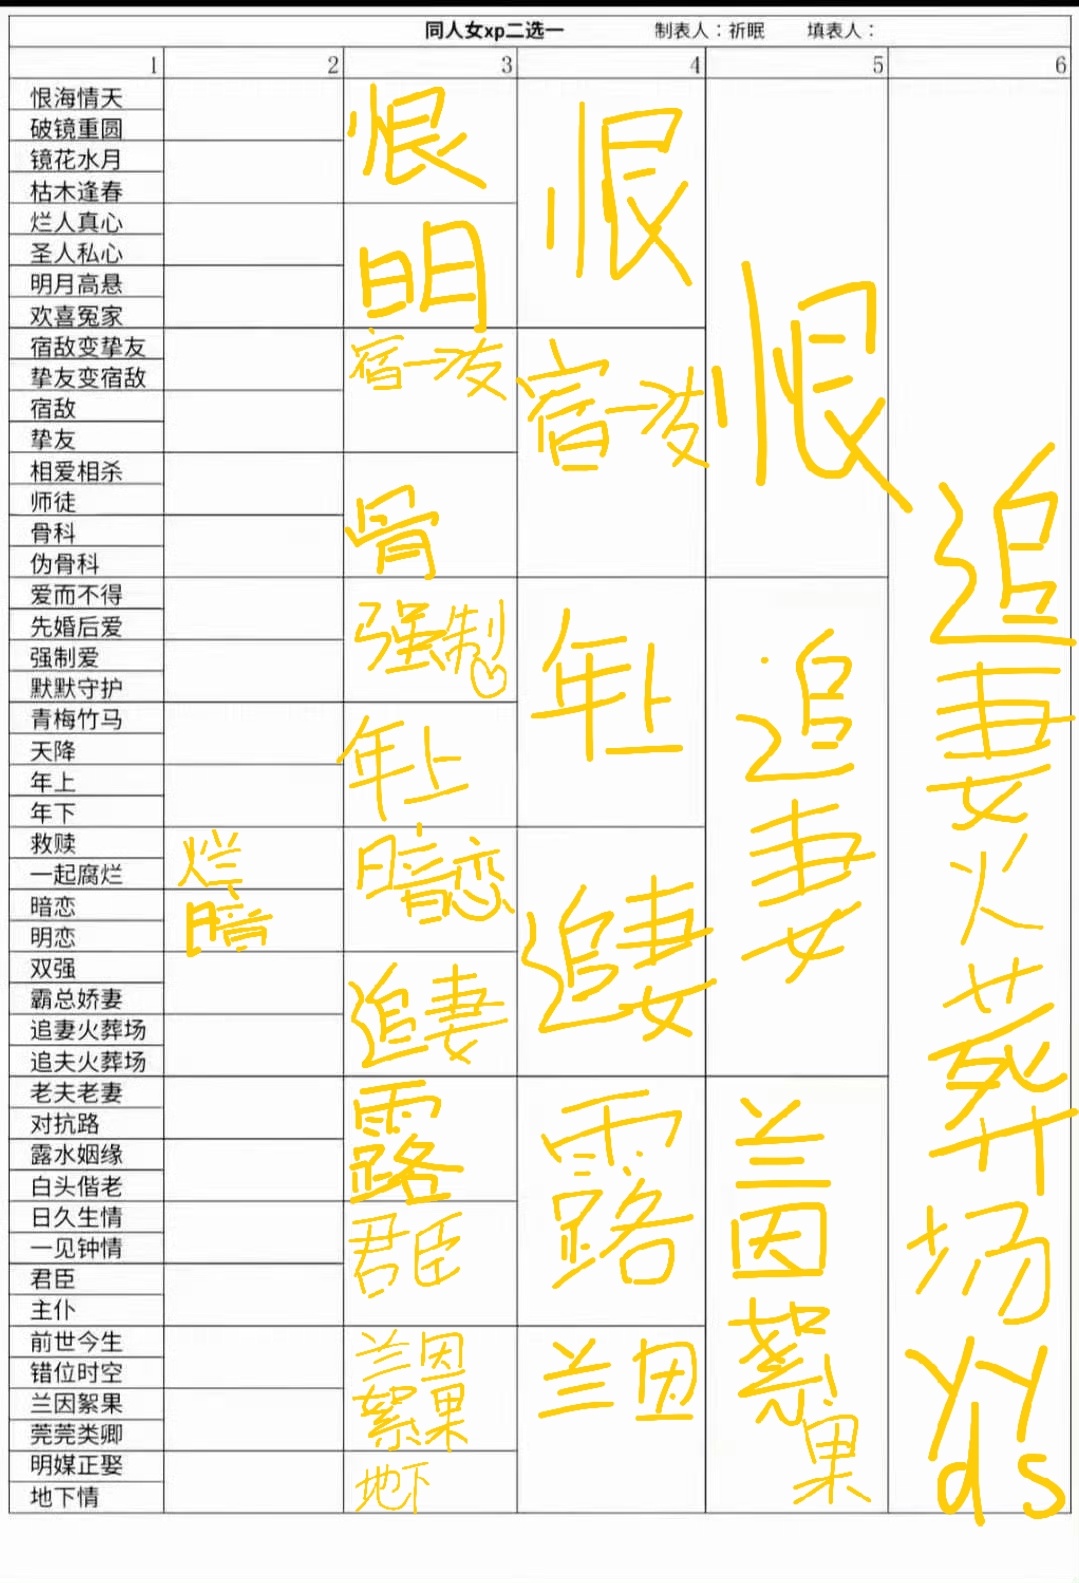 同人女xp二选一 制表人：祈眠 填表人：
1 2 3 4 5 6
恨海情天
破镜重圆
镜花水月
枯木逢春
烂人真心
圣人私心
明月高悬
欢喜冤家
宿敌变挚友
挚友变宿敌
宿敌
挚友
相爱相杀
师徒
骨科
伪骨科
爱而不得
先婚后爱
强制爱
默默守护
青梅竹马
天降
年上
年下
救赎
一起腐烂
暗恋
明恋
双强
霸总娇妻
追妻火葬场
追夫火葬场
老夫老妻
对抗路
露水姻缘
白头偕老
日久生情
一见钟情
君臣
主仆
前世今生
错位时空
兰因絮果
莞莞类卿
明媒正娶
地下情
烂
暗
恨
明
宿→友
骨
强制
年上
暗恋
追妻
露
君臣
兰因
絮果
地下
恨
宿→友
年上
追妻
露
兰因
恨
追
妻
兰
因
絮
果
追
妻
火
葬
场
yyds